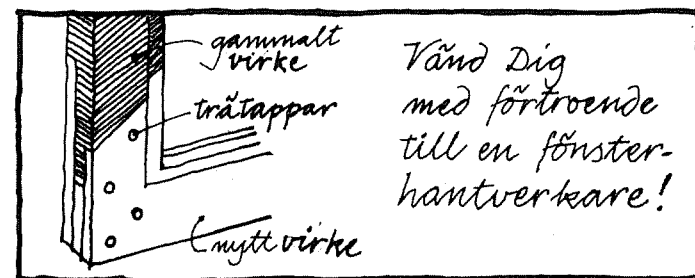 gammalt
virke
trätappar
nytt virke
Vänd Dig
med förtroende
till en fönster-
hantverkare!